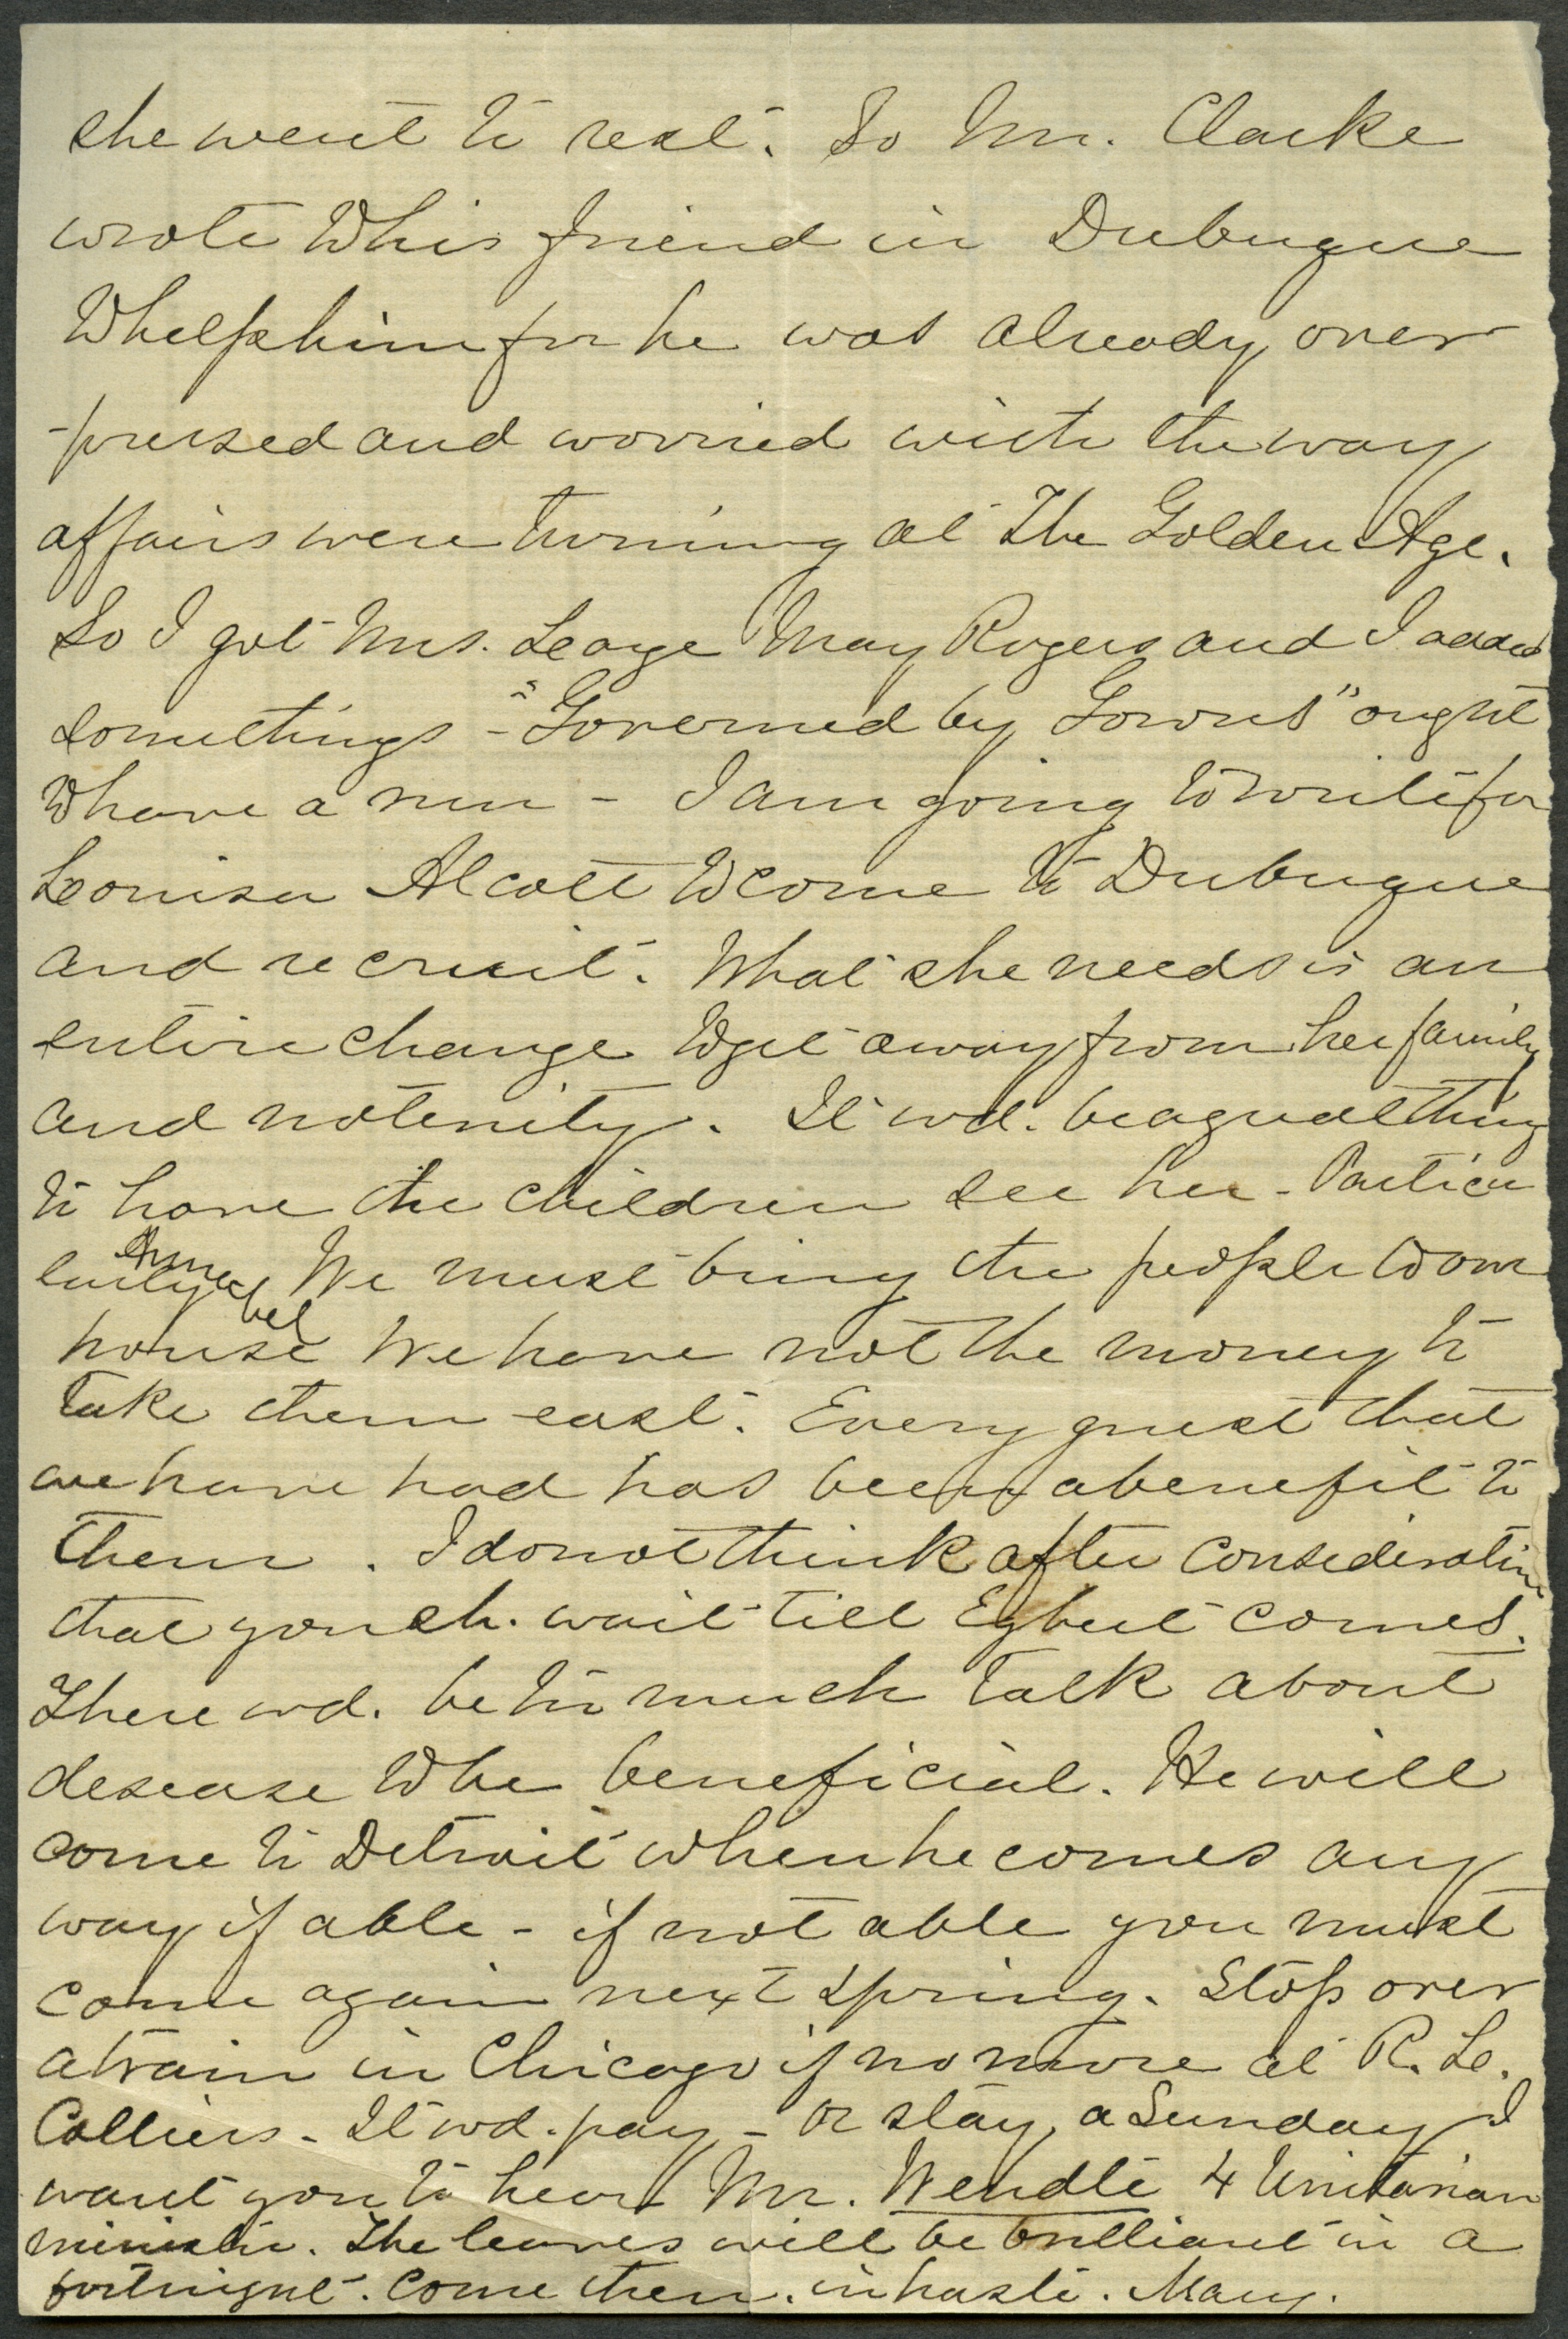 she went to rest. So Mr. Clarke
wrote to his friend in Dubuque
to help him for he was already over
-pressed and worried with the way
affairs were turning at The Golden Age.
So I got Mrs. George May Rogers and I added
somethings - "Governed by Gowns" ought
to have a run - I am going to write for
Louisa Alcott to come to Dubuque
and recruit. What she needs is an
entire change to get away from her family
and notenity. It wd. be a great thing
to have the children see her - Particu
larly Annabel We must bring the people to our
house We have not the money to
take them east. Every guest that
we have had has been a benefit to
them. I do not think after consideration
that you sh. wait till Egbert comes.
There wd. be too much talk about
desease to be beneficial. He will
come to Detroit when he comes any
way if able - if not able you must
come again next spring. Stop over
a train in Chicago if no more at R. Le.
Colliers - It wd. pay - or stay a Sunday I
want you to hear Mr. Wendte 4 Unitarian
minister. The leaves will be brilliant in a
fortnight. Come then. in haste. Mary.